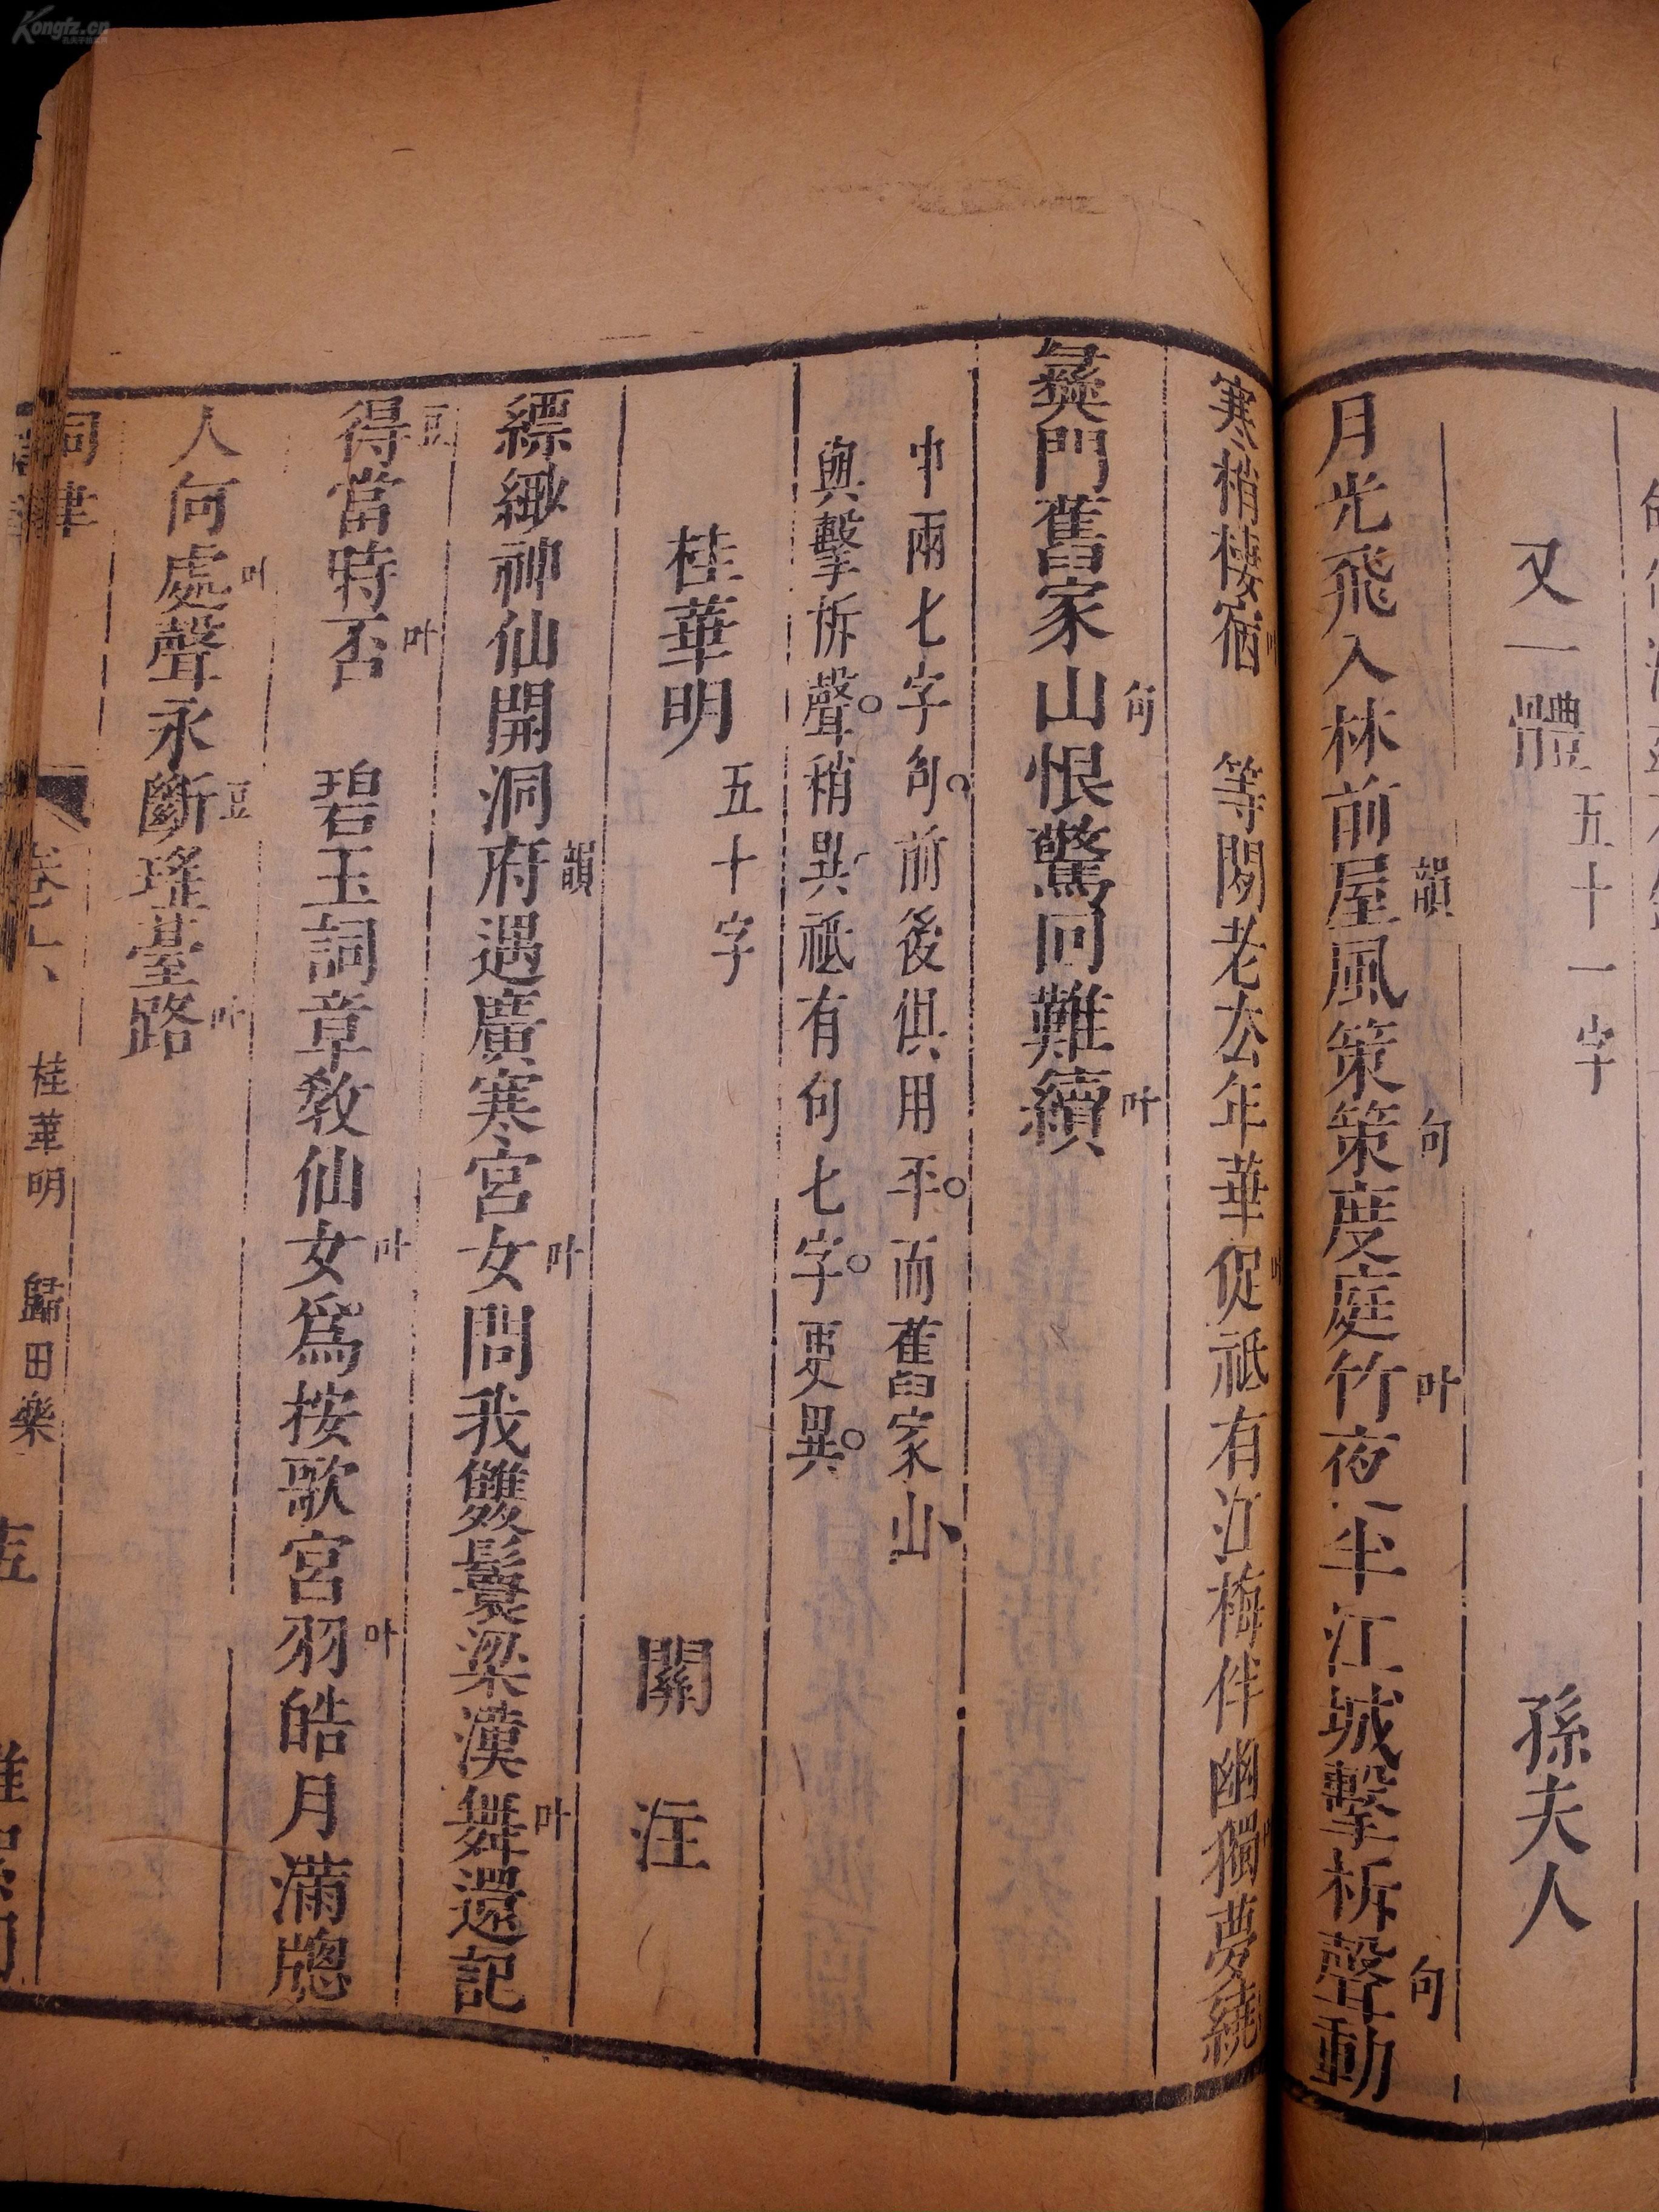 又一體 五十一字 孫夫人
月光飛入林前屋韻風策策句度庭竹叶夜半江城擊柝聲句動
寒梢棲宿叶 等閑老去年華促叶祗有江梅伴幽獨叶夢繞
彝門舊家山句恨驚回難續叶
中兩七字句前後俱用平而舊家山
與擊柝聲稍異祗有句七字更異
桂華明 五十字 關注
縹緲神仙開洞府韻遇廣寒宮女叶問我雙鬟梁漢舞叶還記
得豆當時否叶 碧玉詞章教仙女叶爲按歌宮羽叶皓月滿牕
人何處叶聲永斷豆瑤臺路叶
詞律 卷六 桂華明 歸田樂
Kongfz.cn